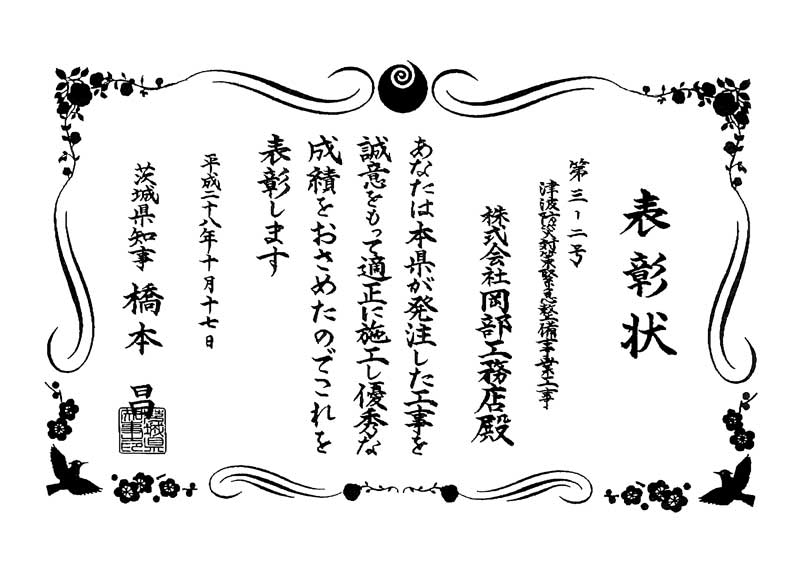 表彰状
第三-二号
津波防災対策緊急整備事業工事
株式会社岡部工務店殿
あなたは本県が発注した工事を
誠意をもって適正に施工し優秀な
成績をおさめたのでこれを
表彰します
平成二十八年十月十七日
茨城県知事 橋本 昌
茨城県知事印